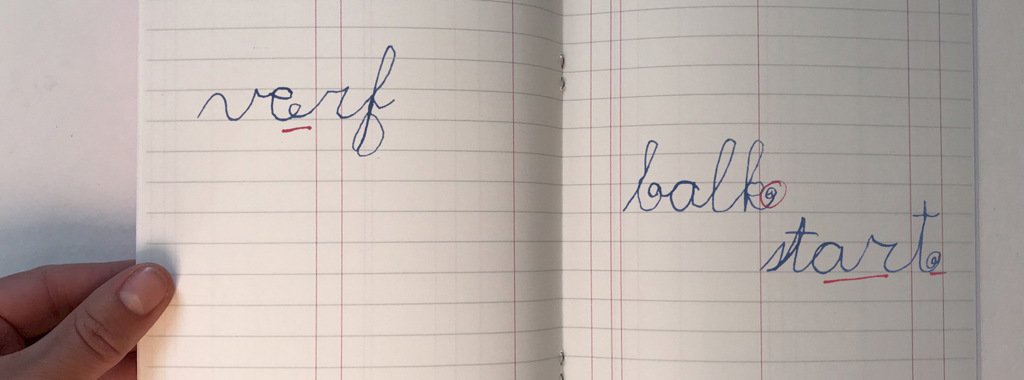 verf
balk
start